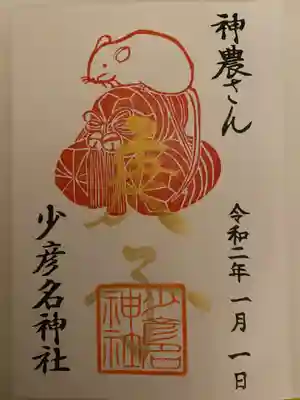 神農さん
令和二年一月一日
庚子
少彦名神社
少彦名
神社